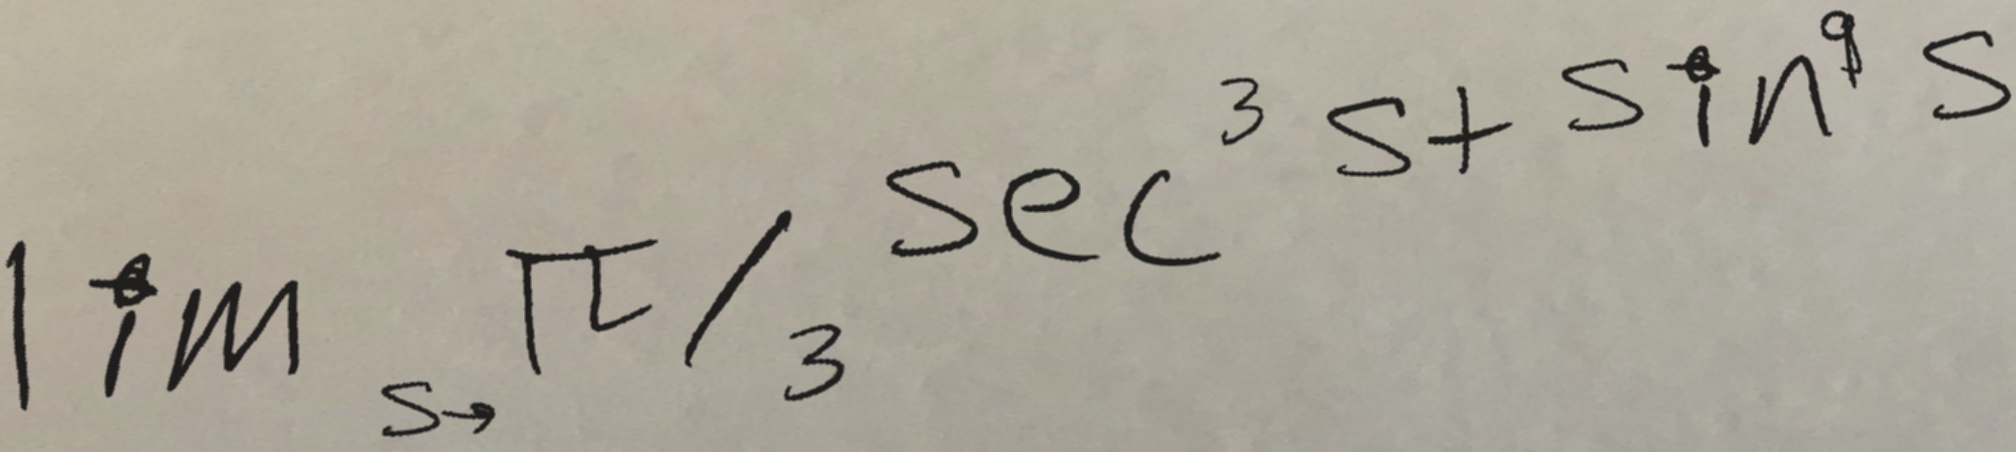 lim s→ π/3 sec³ s + sin⁹ s